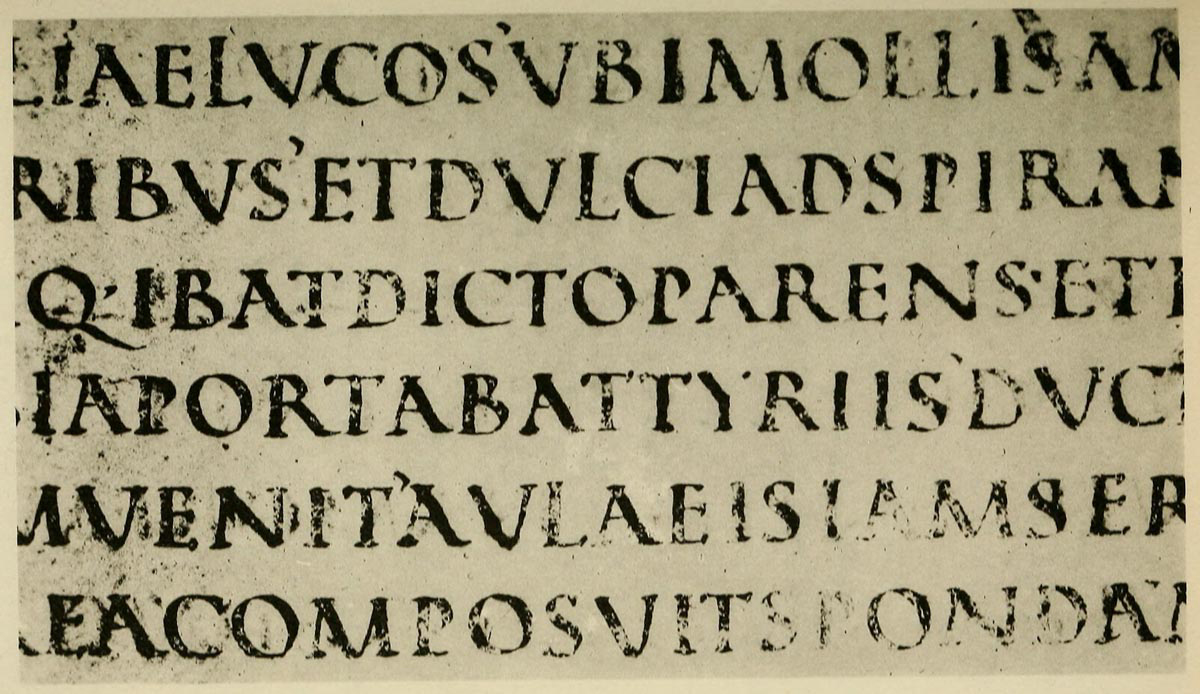 LIAELVCOS'VBIMOLLISAM
RIBVS'ETDVLCIADSPIRAN
Q·IBATDICTOPARENS·ETD
IAPORTABATTYRIIS'DVC
MVENIT'AVLAEISIAMSER
REACOMPOSVITSPONDAM